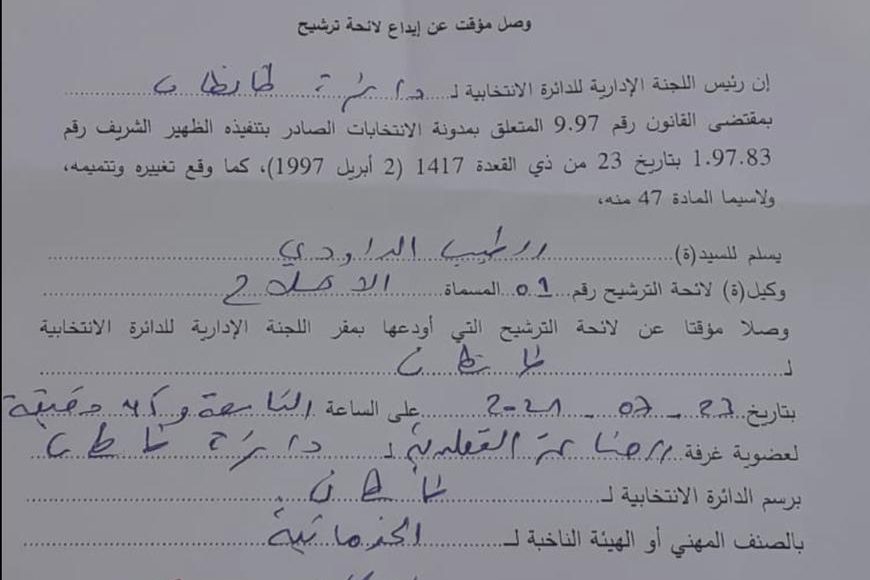 وصل مؤقت عن إيداع لائحة ترشيح
إن رئيس اللجنة الإدارية للدائرة الانتخابية لـ دائرة طانطان
بمقتضى القانون رقم 9.97 المتعلق بمدونة الانتخابات الصادر بتنفيذه الظهير الشريف رقم
1.97.83 بتاريخ 23 من ذي القعدة 1417 (2 أبريل 1997)، كما وقع تغييره وتتميمه،
ولاسيما المادة 47 منه،
يسلم للسيد(ة) الطيب الداودي
وكيل(ة) لائحة الترشيح رقم 01 المسماة
وصلا مؤقتا عن لائحة الترشيح التي أودعها بمقر اللجنة الإدارية للدائرة الانتخابية
لـ طانطان
بتاريخ 23 - 07 - 2021 على الساعة التاسعة و دقيقة
لعضوية غرفة الصناعة التقليدية لـ دائرة طانطان
برسم الدائرة الانتخابية لـ طانطان
بالصنف المهني أو الهيئة الناخبة لـ الخدماتية